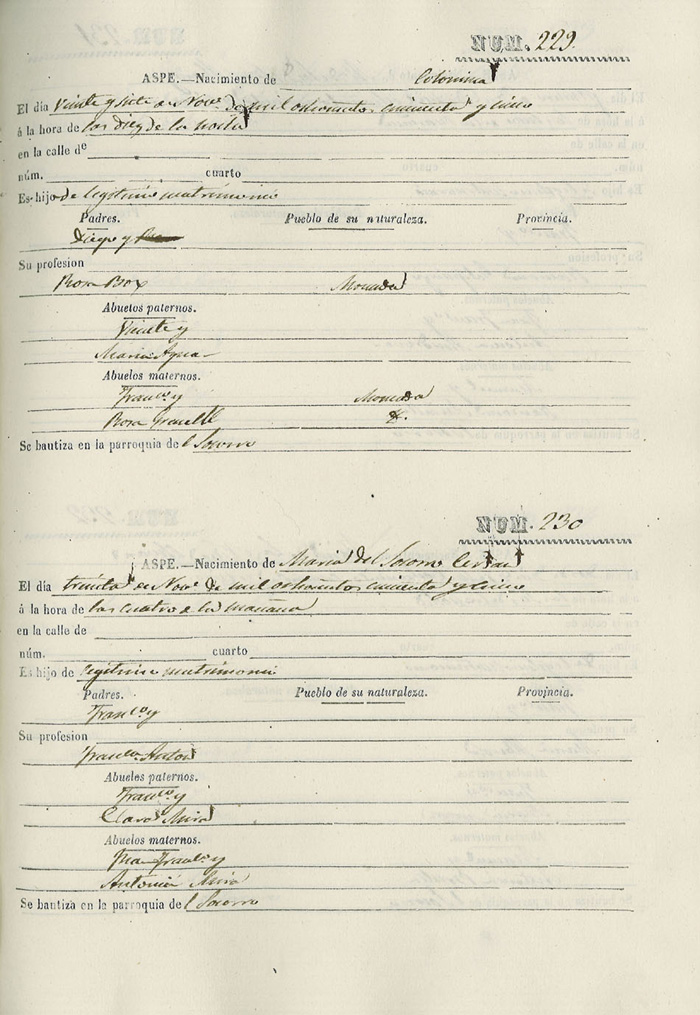 NUM. 229.
ASPE.—Nacimiento de Colomina
El día veinte y siete de Nov.e de mil ochocientos cincuenta y cinco
á la hora de las diez de la noche
en la calle de
núm. cuarto
Es hijo de legitimo matrimonio
Padres. Pueblo de su naturaleza. Provincia.
Diego y
Su profesion
Rosa Box Monovar
Abuelos paternos.
Vicente y
Maria
Abuelos maternos.
Fran.co y Monovar
Rosa
Se bautiza en la parroquia del Socorro
NUM. 230
ASPE.—Nacimiento de Maria del Socorro
El día treinta de Nov.e de mil ochocientos cincuenta y cinco
á la hora de las cuatro de la mañana
en la calle de
núm. cuarto
Es hijo de legitimo matrimonio
Padres. Pueblo de su naturaleza. Provincia.
Fran.co y
Su profesion
Fran.ca Anton
Abuelos paternos.
Fran.co y
Clara Mira
Abuelos maternos.
Fran.co y
Antonia Mira
Se bautiza en la parroquia del Socorro